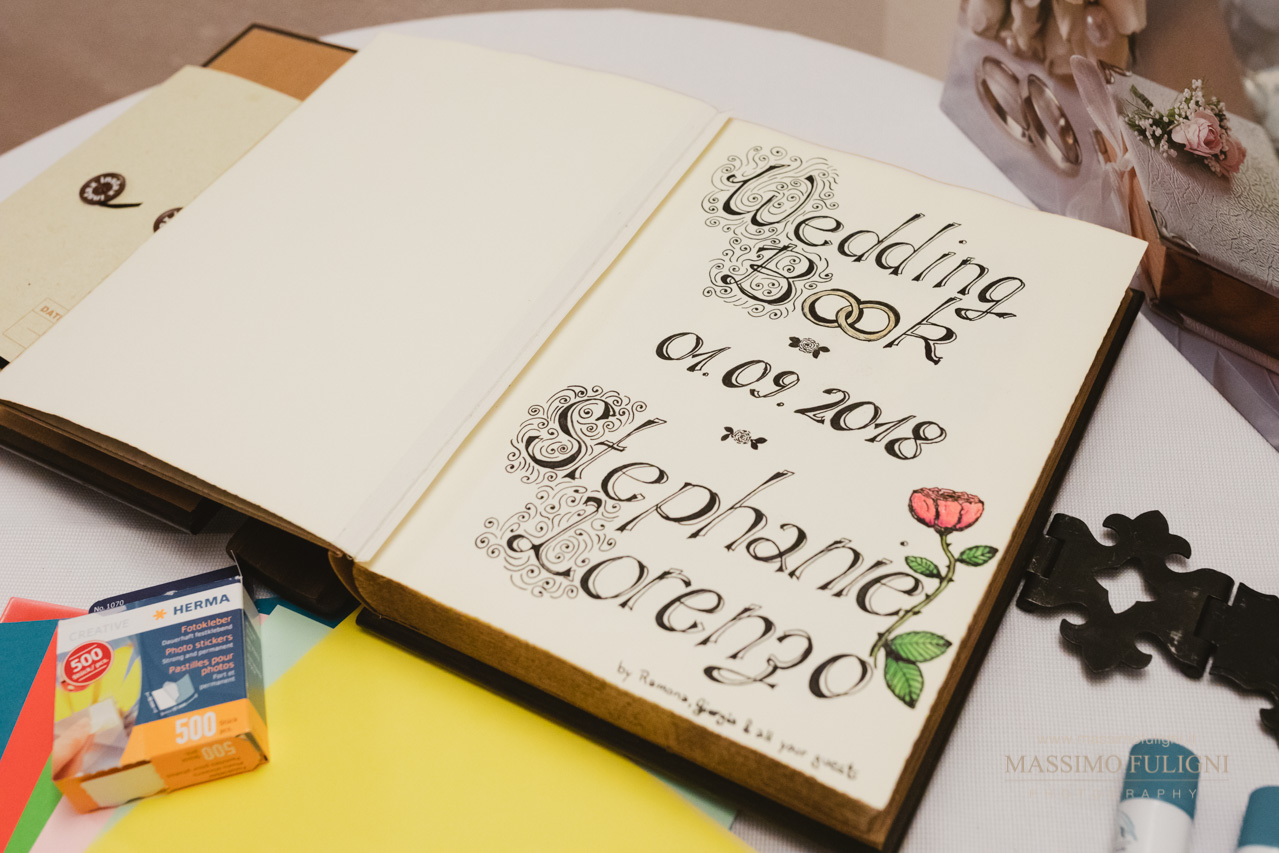 Wedding
Book
01.09.2018
Stephanie
Lorenzo
by Ramona, Giorgia & all your guests
DAT
No. 1070
HERMA
CREATIVE
Fotokleber
Dauerhaft festklebend
Photo stickers
Strong and permanent
Pastilles pour
photos
Fort et
permanent
500
500
500
MASSIMO FULIGNI